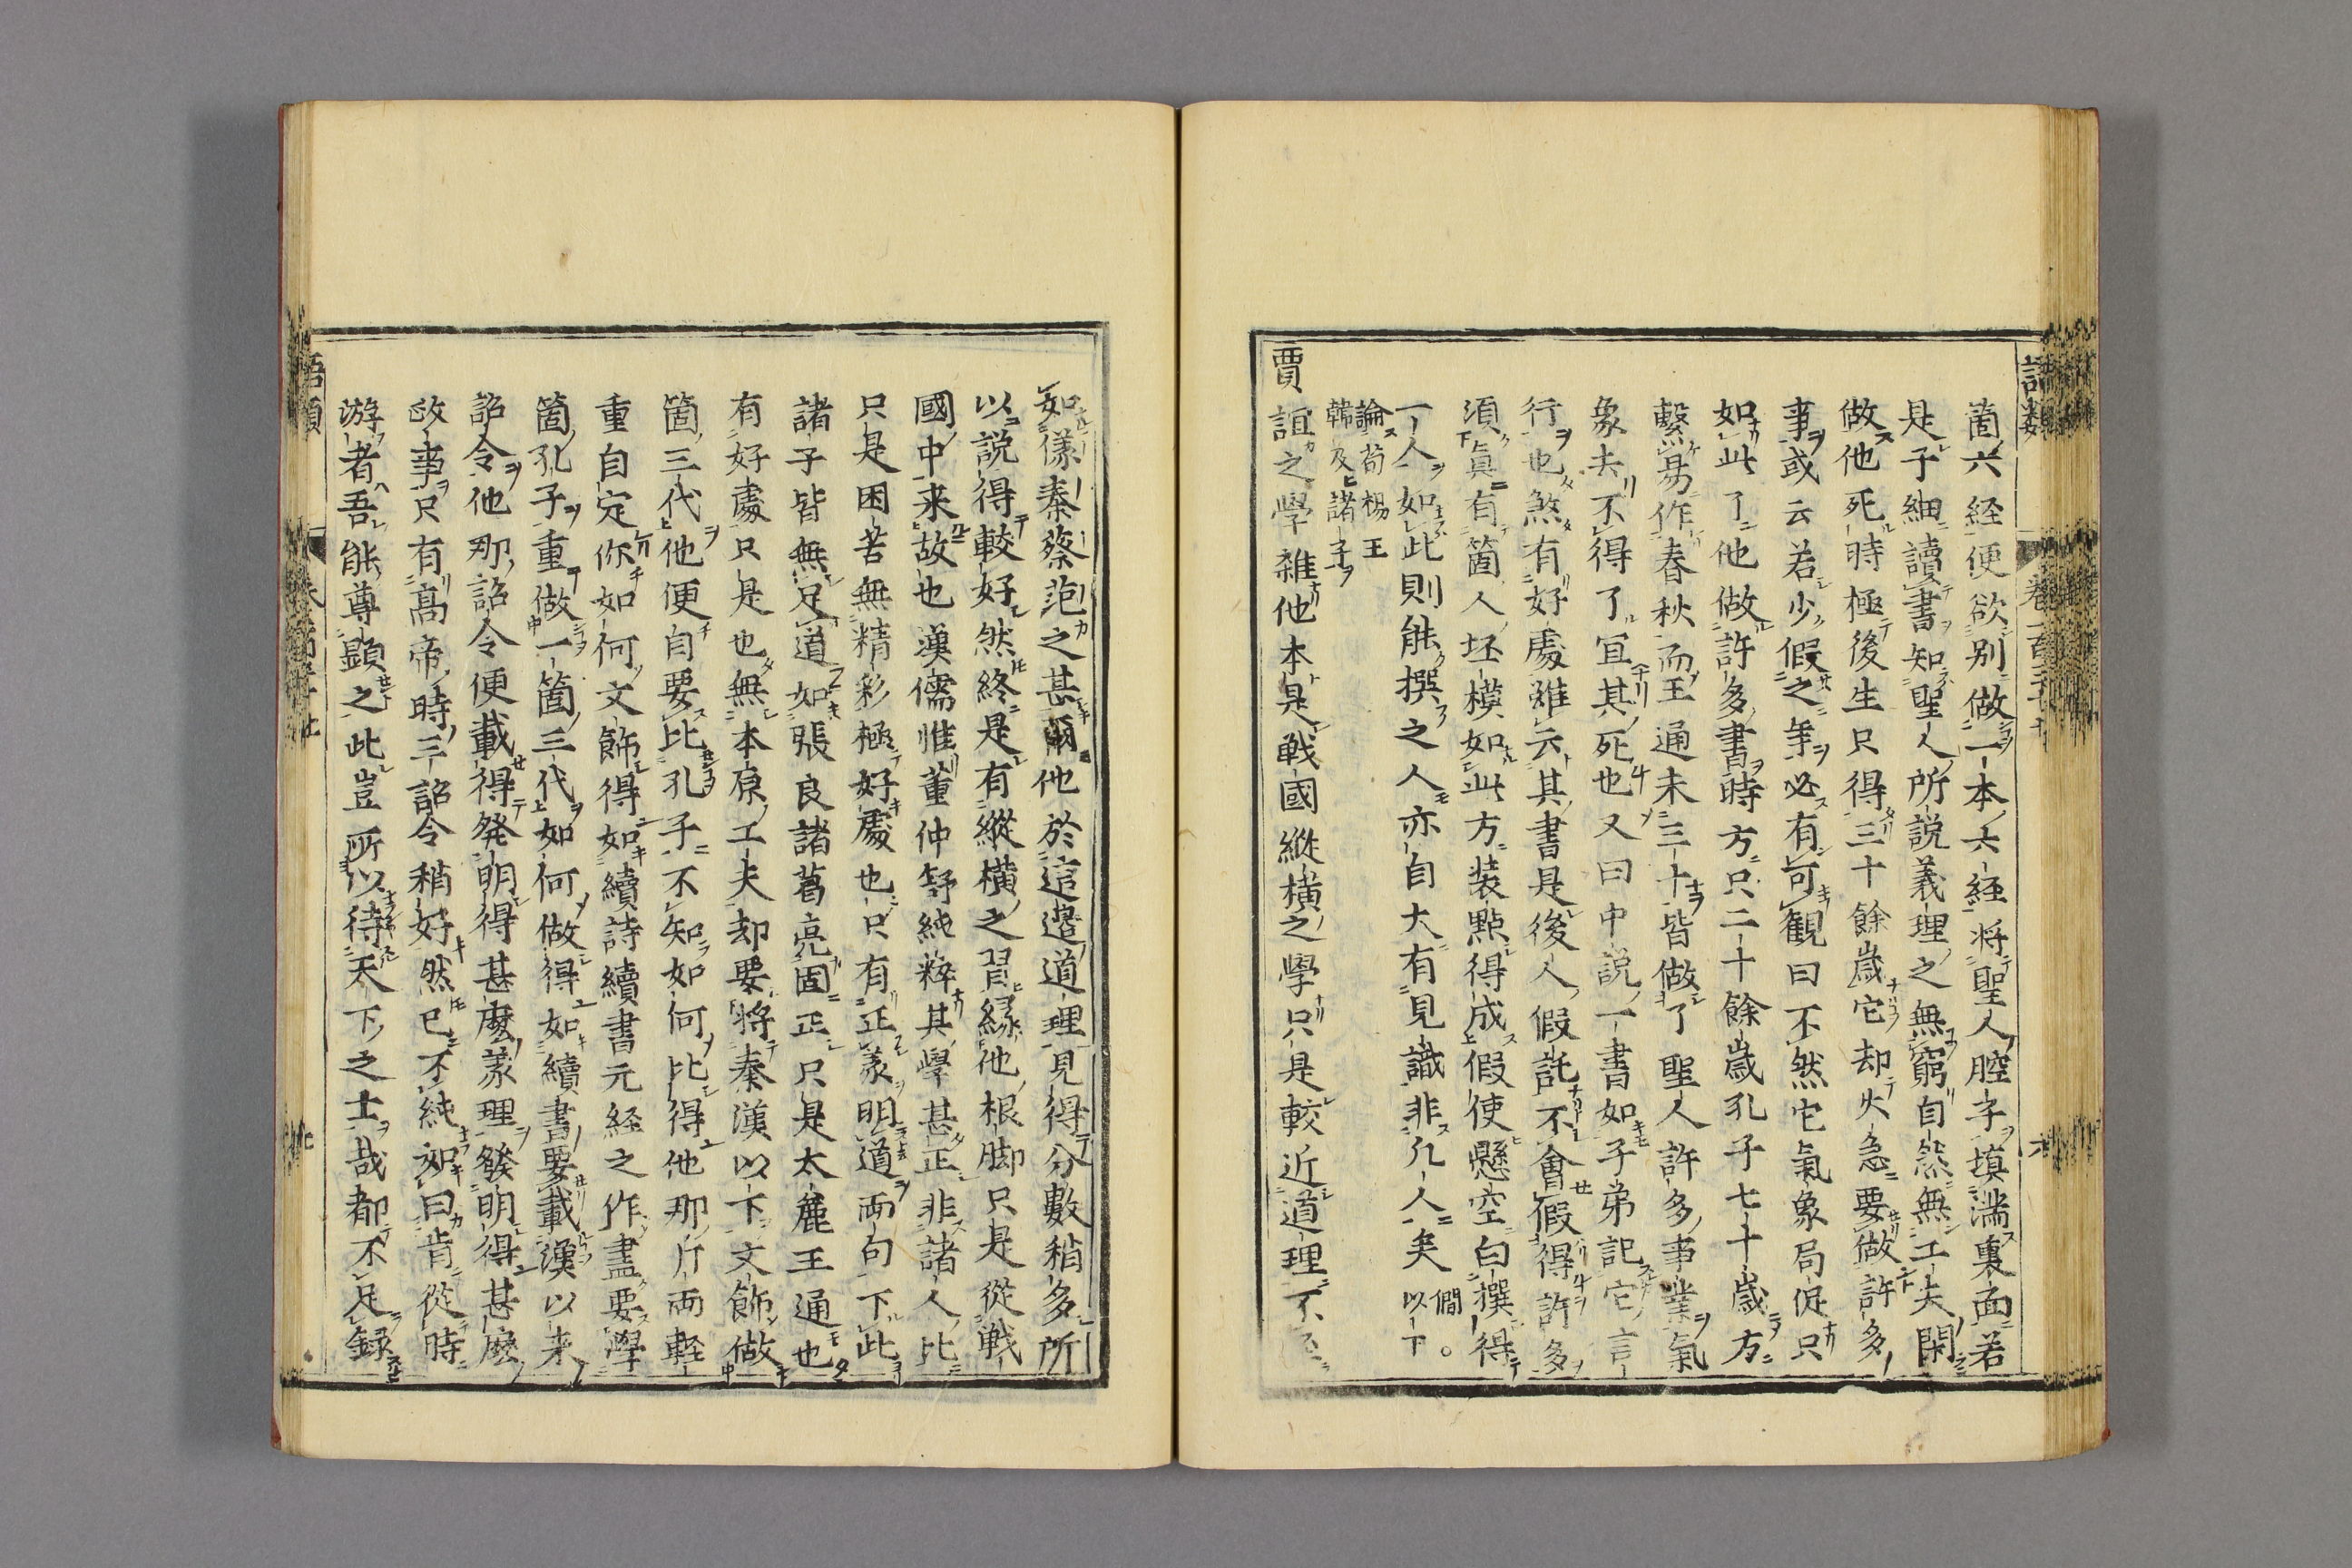 箇六経便欲別做一本六経将聖人腔子填滿裏面若
是子細讀書知聖人所説義理之無窮自然無工夫閑
做他死時極後生只得三十餘歳它却火急要做許多
事或云若少假之年必有可観曰不然它氣象局促只
如此了他做許多書時方只二十餘歳孔子七十歳方
繫易作春秋而王通未三十皆做了聖人許多事業氣
象去不得了冝其死也又曰中説一書如子弟記它言
行也煞有好處雖云其書是後人假託不會假得許多
須真有箇人坯模如此方装點得成假使懸空白撰得
一人如此則能撰之人亦自大有見識非凡人矣 僩。以下
論荀楊王
韓及諸子
賈誼之學雑他本是戦國縦横之學只是較近道理不至
如儀秦蔡范之甚爾他於這邉道理見得分數稍多所
以説得較好然終是有縦横之習縁他根脚只是從戦
國中来故也漢儒惟董仲舒純粹其學甚正非諸人比
只是困苦無精彩極好處也只有正義明道両句下此
諸子皆無足道如張良諸葛亮固正只是太麁王通也
有好處只是也無本原工夫却要将秦漢以下文飾做
箇三代他便自要比孔子不知如何比得他那斤両軽
重自定你如何文飾得如續詩續書元経之作盡要學
箇孔子重做一箇三代如何做得如續書要載漢以来
詔令他那詔令便載得発明得甚麽義理發明得甚麽
政事只有髙帝時三詔令稍好然已不純如曰肯從時
游者吾能尊顕之此豈所以待天下之士哉都不足録
語類
巻一百三十七
六
語類